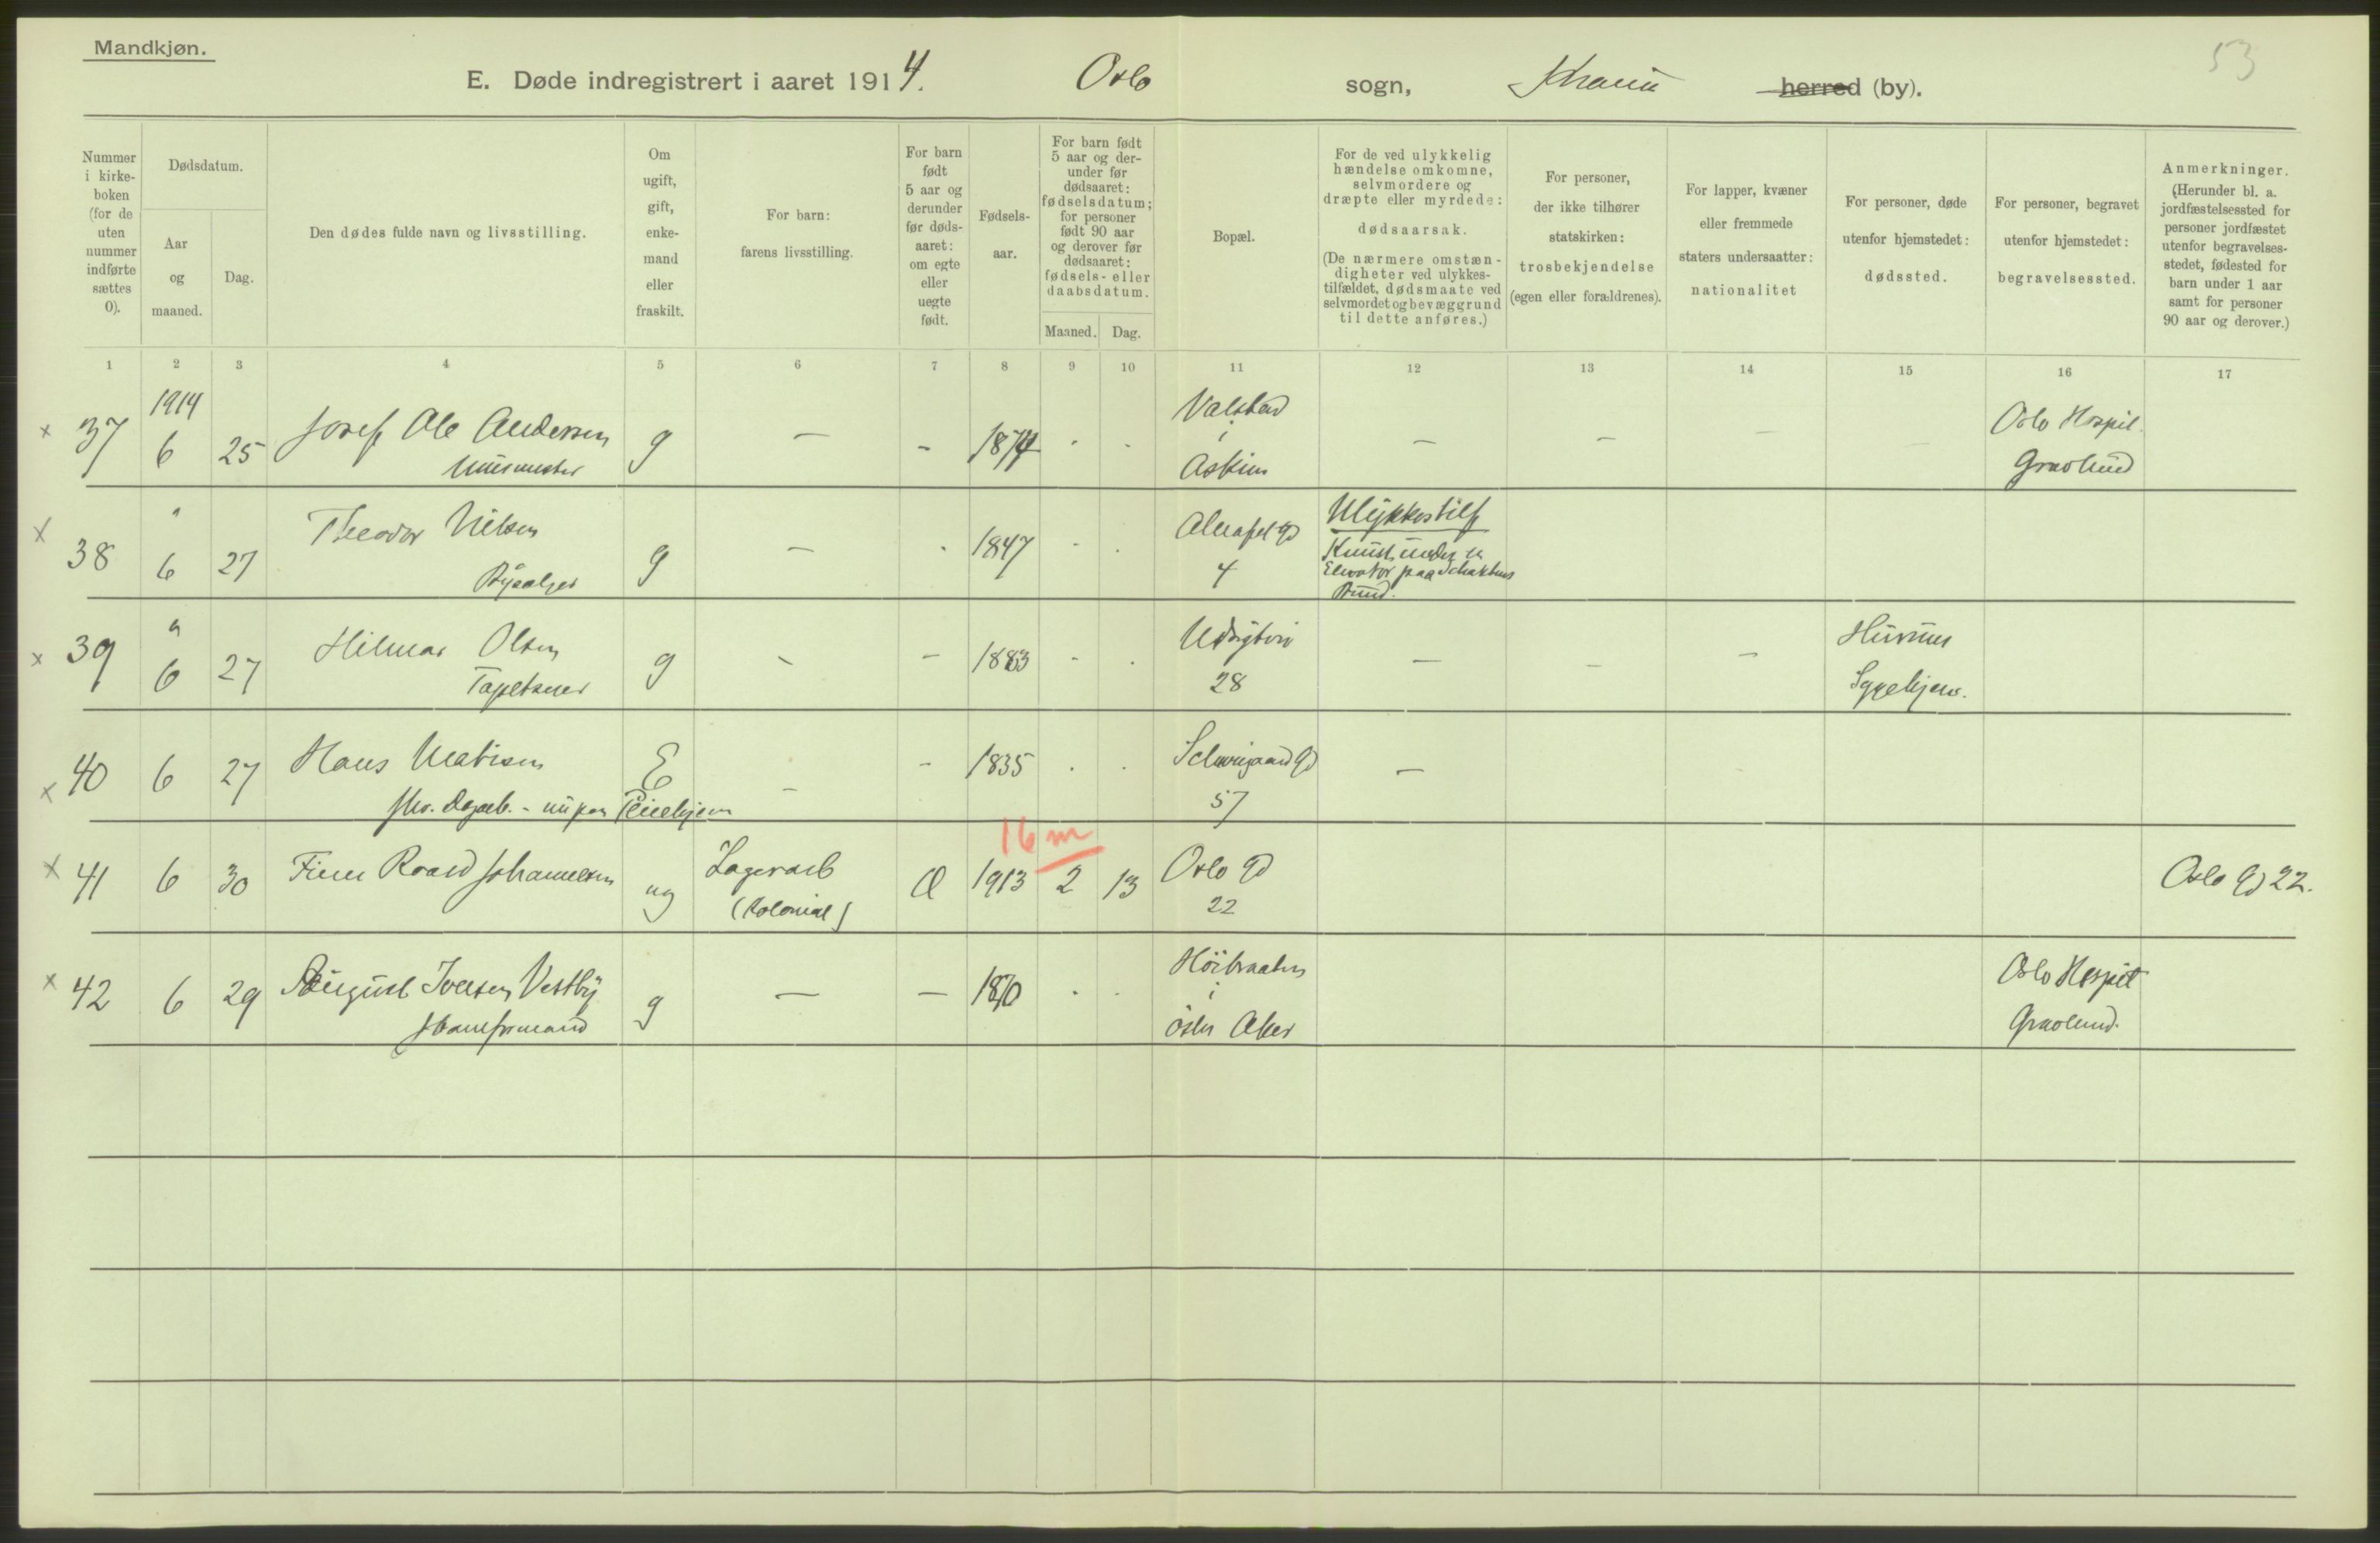 Mandkjøn.
53
E. Døde indregistrert i aaret 1914. Oslo sogn, Kra~~herred~~ (by).
Nummer i kirke-boken (for de uten nummer indførte sættes 0).
Dødsdatum.
Aar og maaned.
Dag.
Den dødes fulde navn og livsstilling.
Om ugift, gift, enke-mand eller fraskilt.
For barn: farens livsstilling.
For barn født 5 aar og derunder før døds-aaret: om egte eller uegte født.
Fødsels-aar.
For barn født 5 aar og der-under før dødsaaret: fødselsdatum; for personer født 90 aar og derover før dødsaaret: fødsels- eller daabsdatum.
Maaned. Dag.
Bopæl.
For de ved ulykkelig hændelse omkomne, selvmordere og dræpte eller myrdede: dødsaarsak. (De nærmere omstæn-digheter ved ulykkes-tilfældet, dødsmaate ved selvmordet og bevæggrund til dette anføres.)
For personer, der ikke tilhører statskirken: trosbekjendelse (egen eller forældrenes).
For lapper, kvæner eller fremmede staters undersaatter: nationalitet
For personer, døde utenfor hjemstedet: dødssted.
For personer, begravet utenfor hjemstedet: begravelsessted.
Anmerkninger. (Herunder bl. a. jordfæstelsessted for personer jordfæstet utenfor begravelses-stedet, fødested for barn under 1 aar samt for personer 90 aar og derover.)
1 2 3 4 5 6 7 8 9 10 11 12 13 14 15 16 17
1914
x 37 6 25 Josef Ole Andersen g — - 1874 - - Valstad i Askim — — — — Oslo Hospit. Gravlund
Murmester
x 38 " 6 27 Theodor Nilsen g — - 1847 - - Alnafetgd 4 Ulykkestilf
Knust under en Elevator paa Schaktens Bund.
x 39 " 6 27 Hilmar Olsen g - — 1883 - - Utsigtvei 28 — — — Hurum Sygehjem.
Tapetserer
x 40 6 27 Hans Matisen E - - 1835 - - Schweigaardgd 57 —
fhv. Dagarb. - nu paa Pleiehjem
16 m
x 41 6 30 Finn Roald Johannessen ug Lagerarb (Kolonial) Æ 1913 2 13 Oslo gd 22 Oslo gd 22.
x 42 6 29 August Iversen Vestby g — — 1870 - - Höibraaten i östre Aker Oslo Hospit Gravlund.